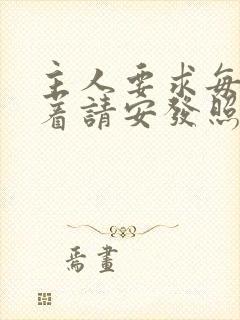 主人要求每
着請安發照
焉畫